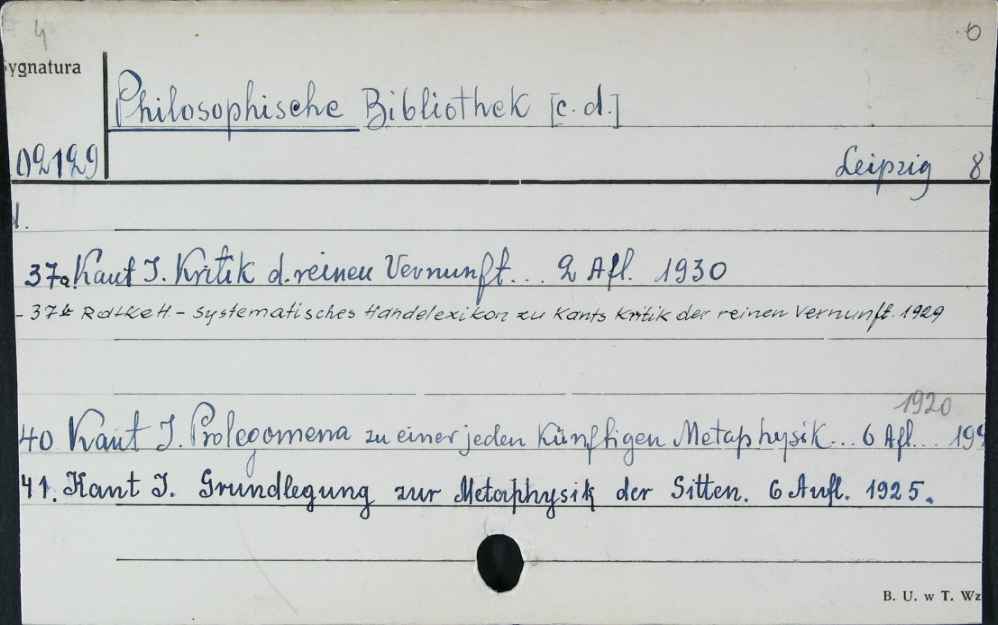 4
6
ygnatura
Philosophische Bibliothek [c. d.]
02129
Leipzig 8
37a Kant I. Kritik d. reinen Vernunft... 2 Afl. 1930
- 37b Ratke H - Systematisches Handelexikon zu Kants Kritik der reinen Vernunft. 1929
1920
40 Kant I. Prolegomena zu einer jeden Künftigen Metaphysik... 6 Afl...
41. Kant I. Grundlegung zur Metaphysik der Sitten. 6 Aufl. 1925.
B. U. w T. Wz